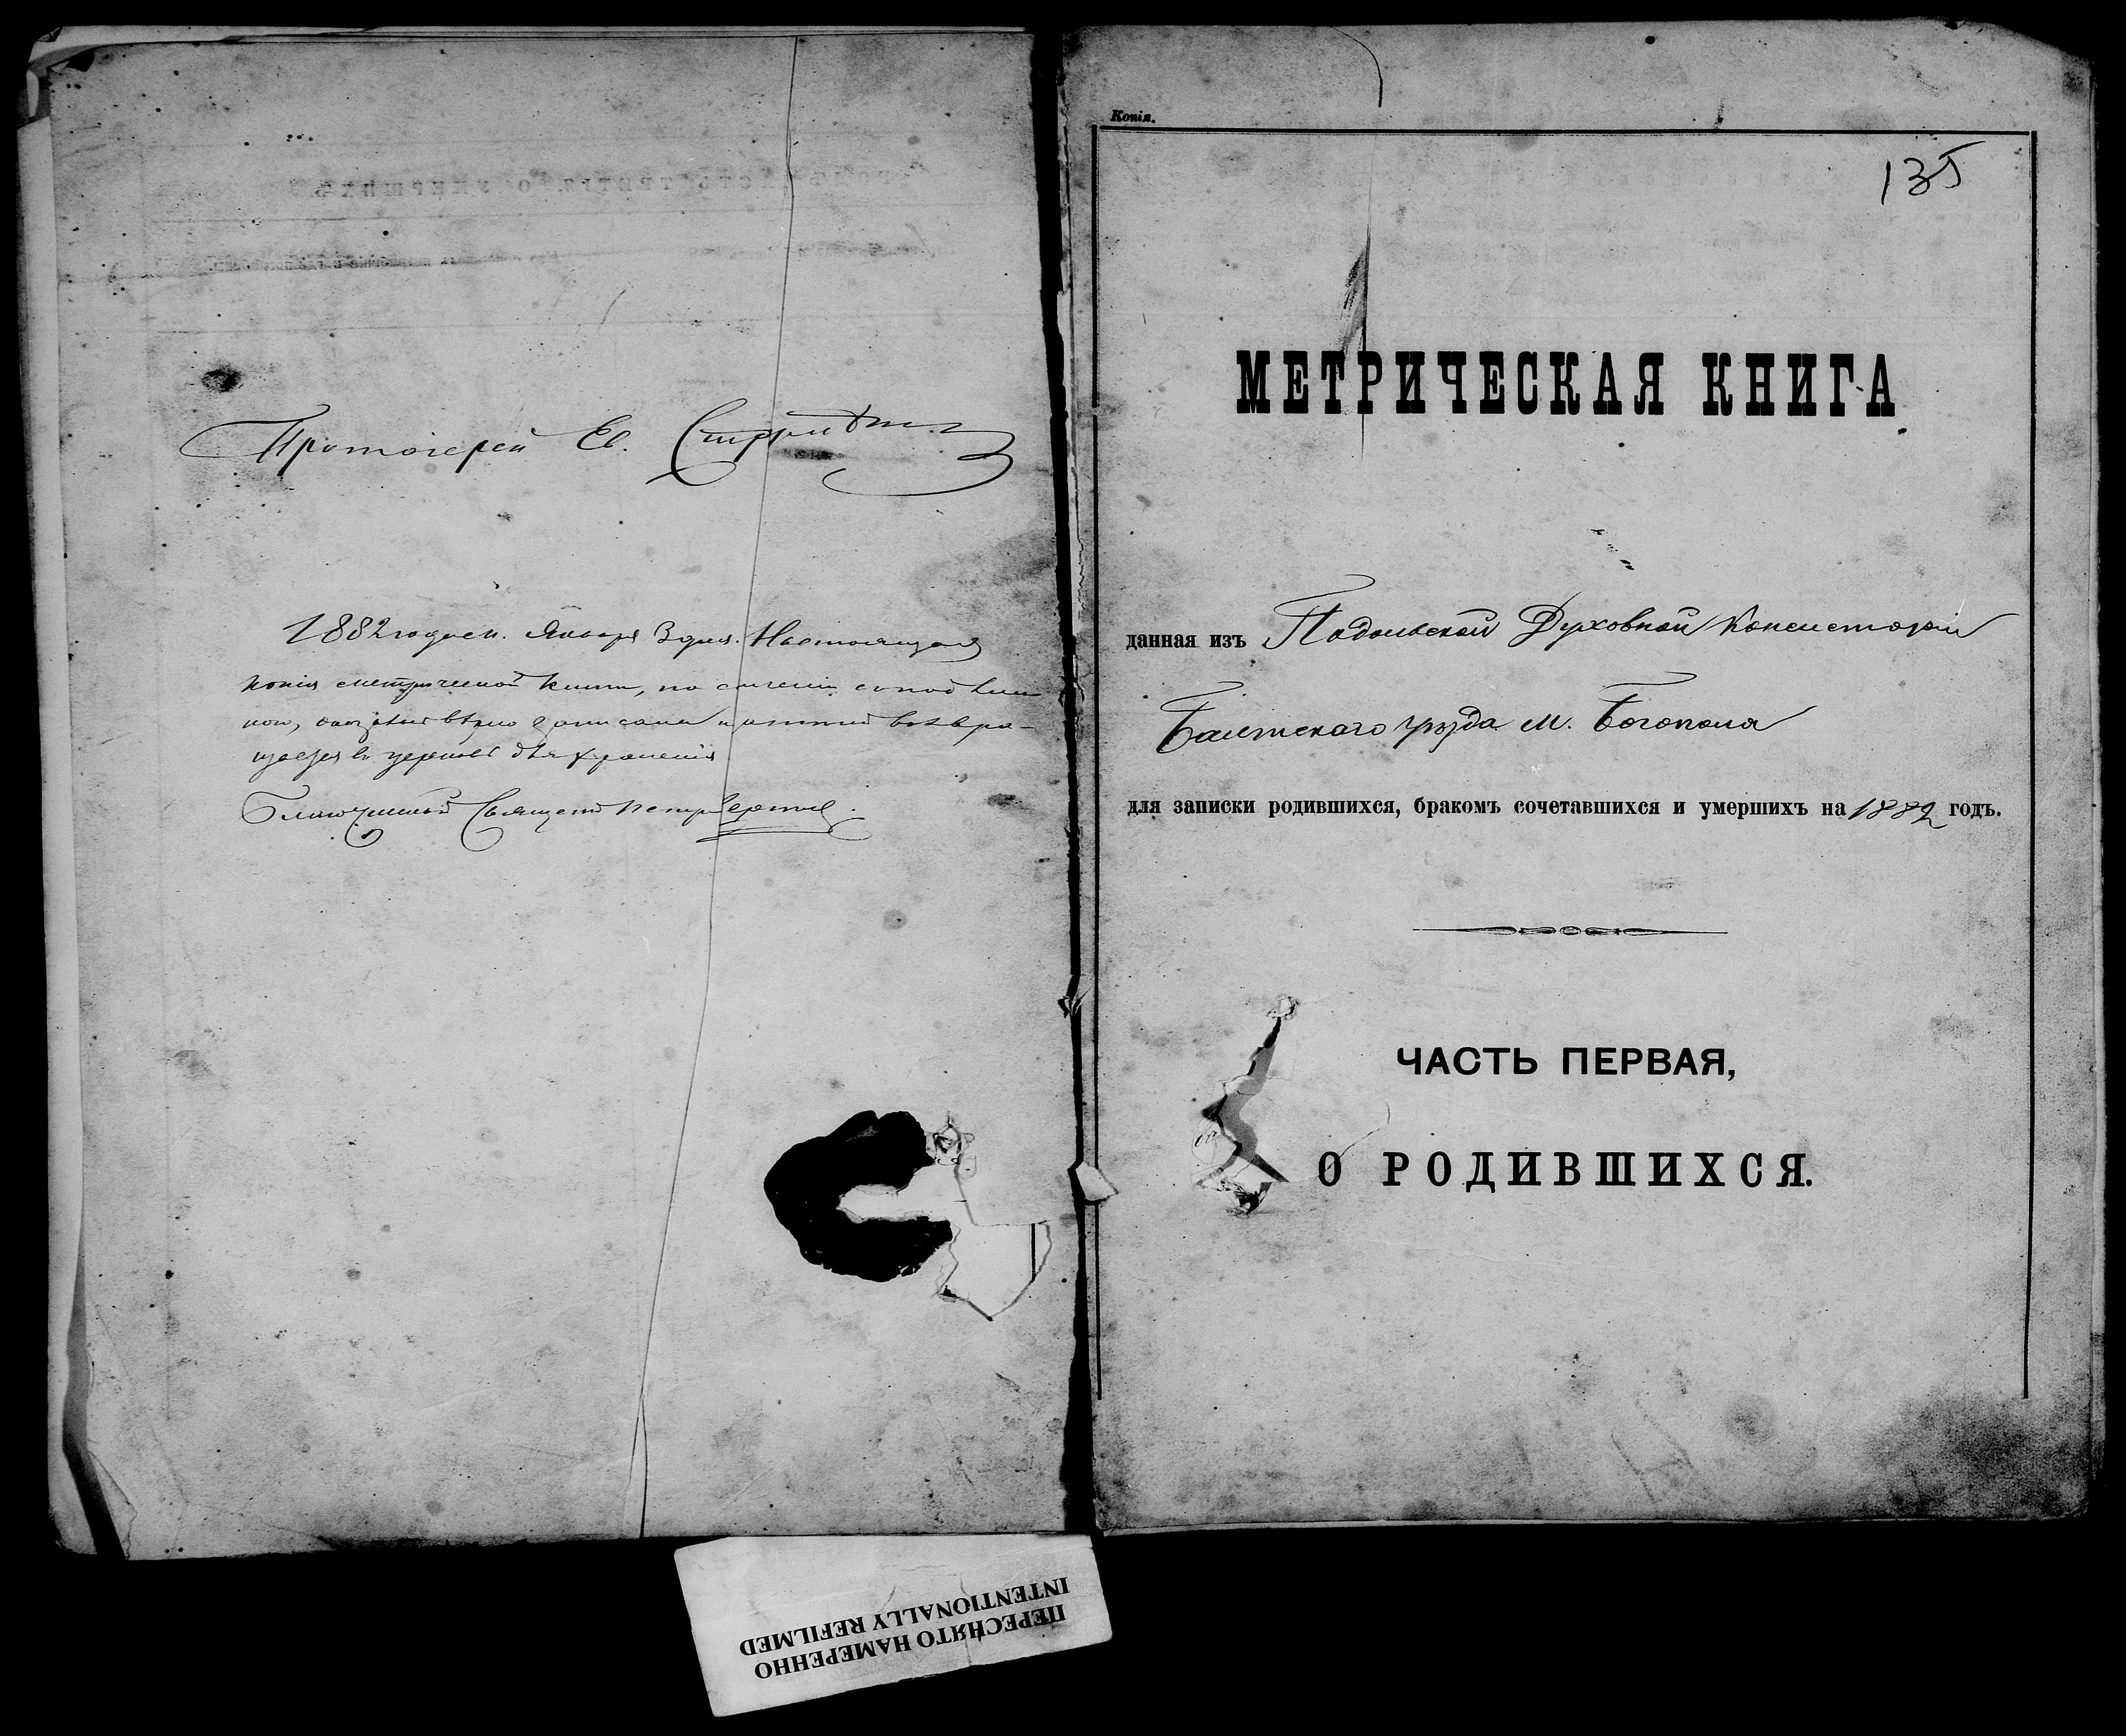 Протоіерей Ев.
1882 года Января 3 дня. Настоящая
копія метрической книги, по сличеніи
вѣрно возвра-
щается въ церковь для хранения
Благочинный Священ Петръ
Копія.
135
МЕТРИЧЕСКАЯ КНИГА
данная изъ Подольской Духовной Консисторіи
Балтскаго уѣзда м. Богополя
для записки родившихся, бракомъ сочетавшихся и умершихъ на 1882 годъ.
ЧАСТЬ ПЕРВАЯ,
О РОДИВШИХСЯ.
ПЕРЕСНЯТО НАМЕРЕННО
INTENTIONALLY REFILMED